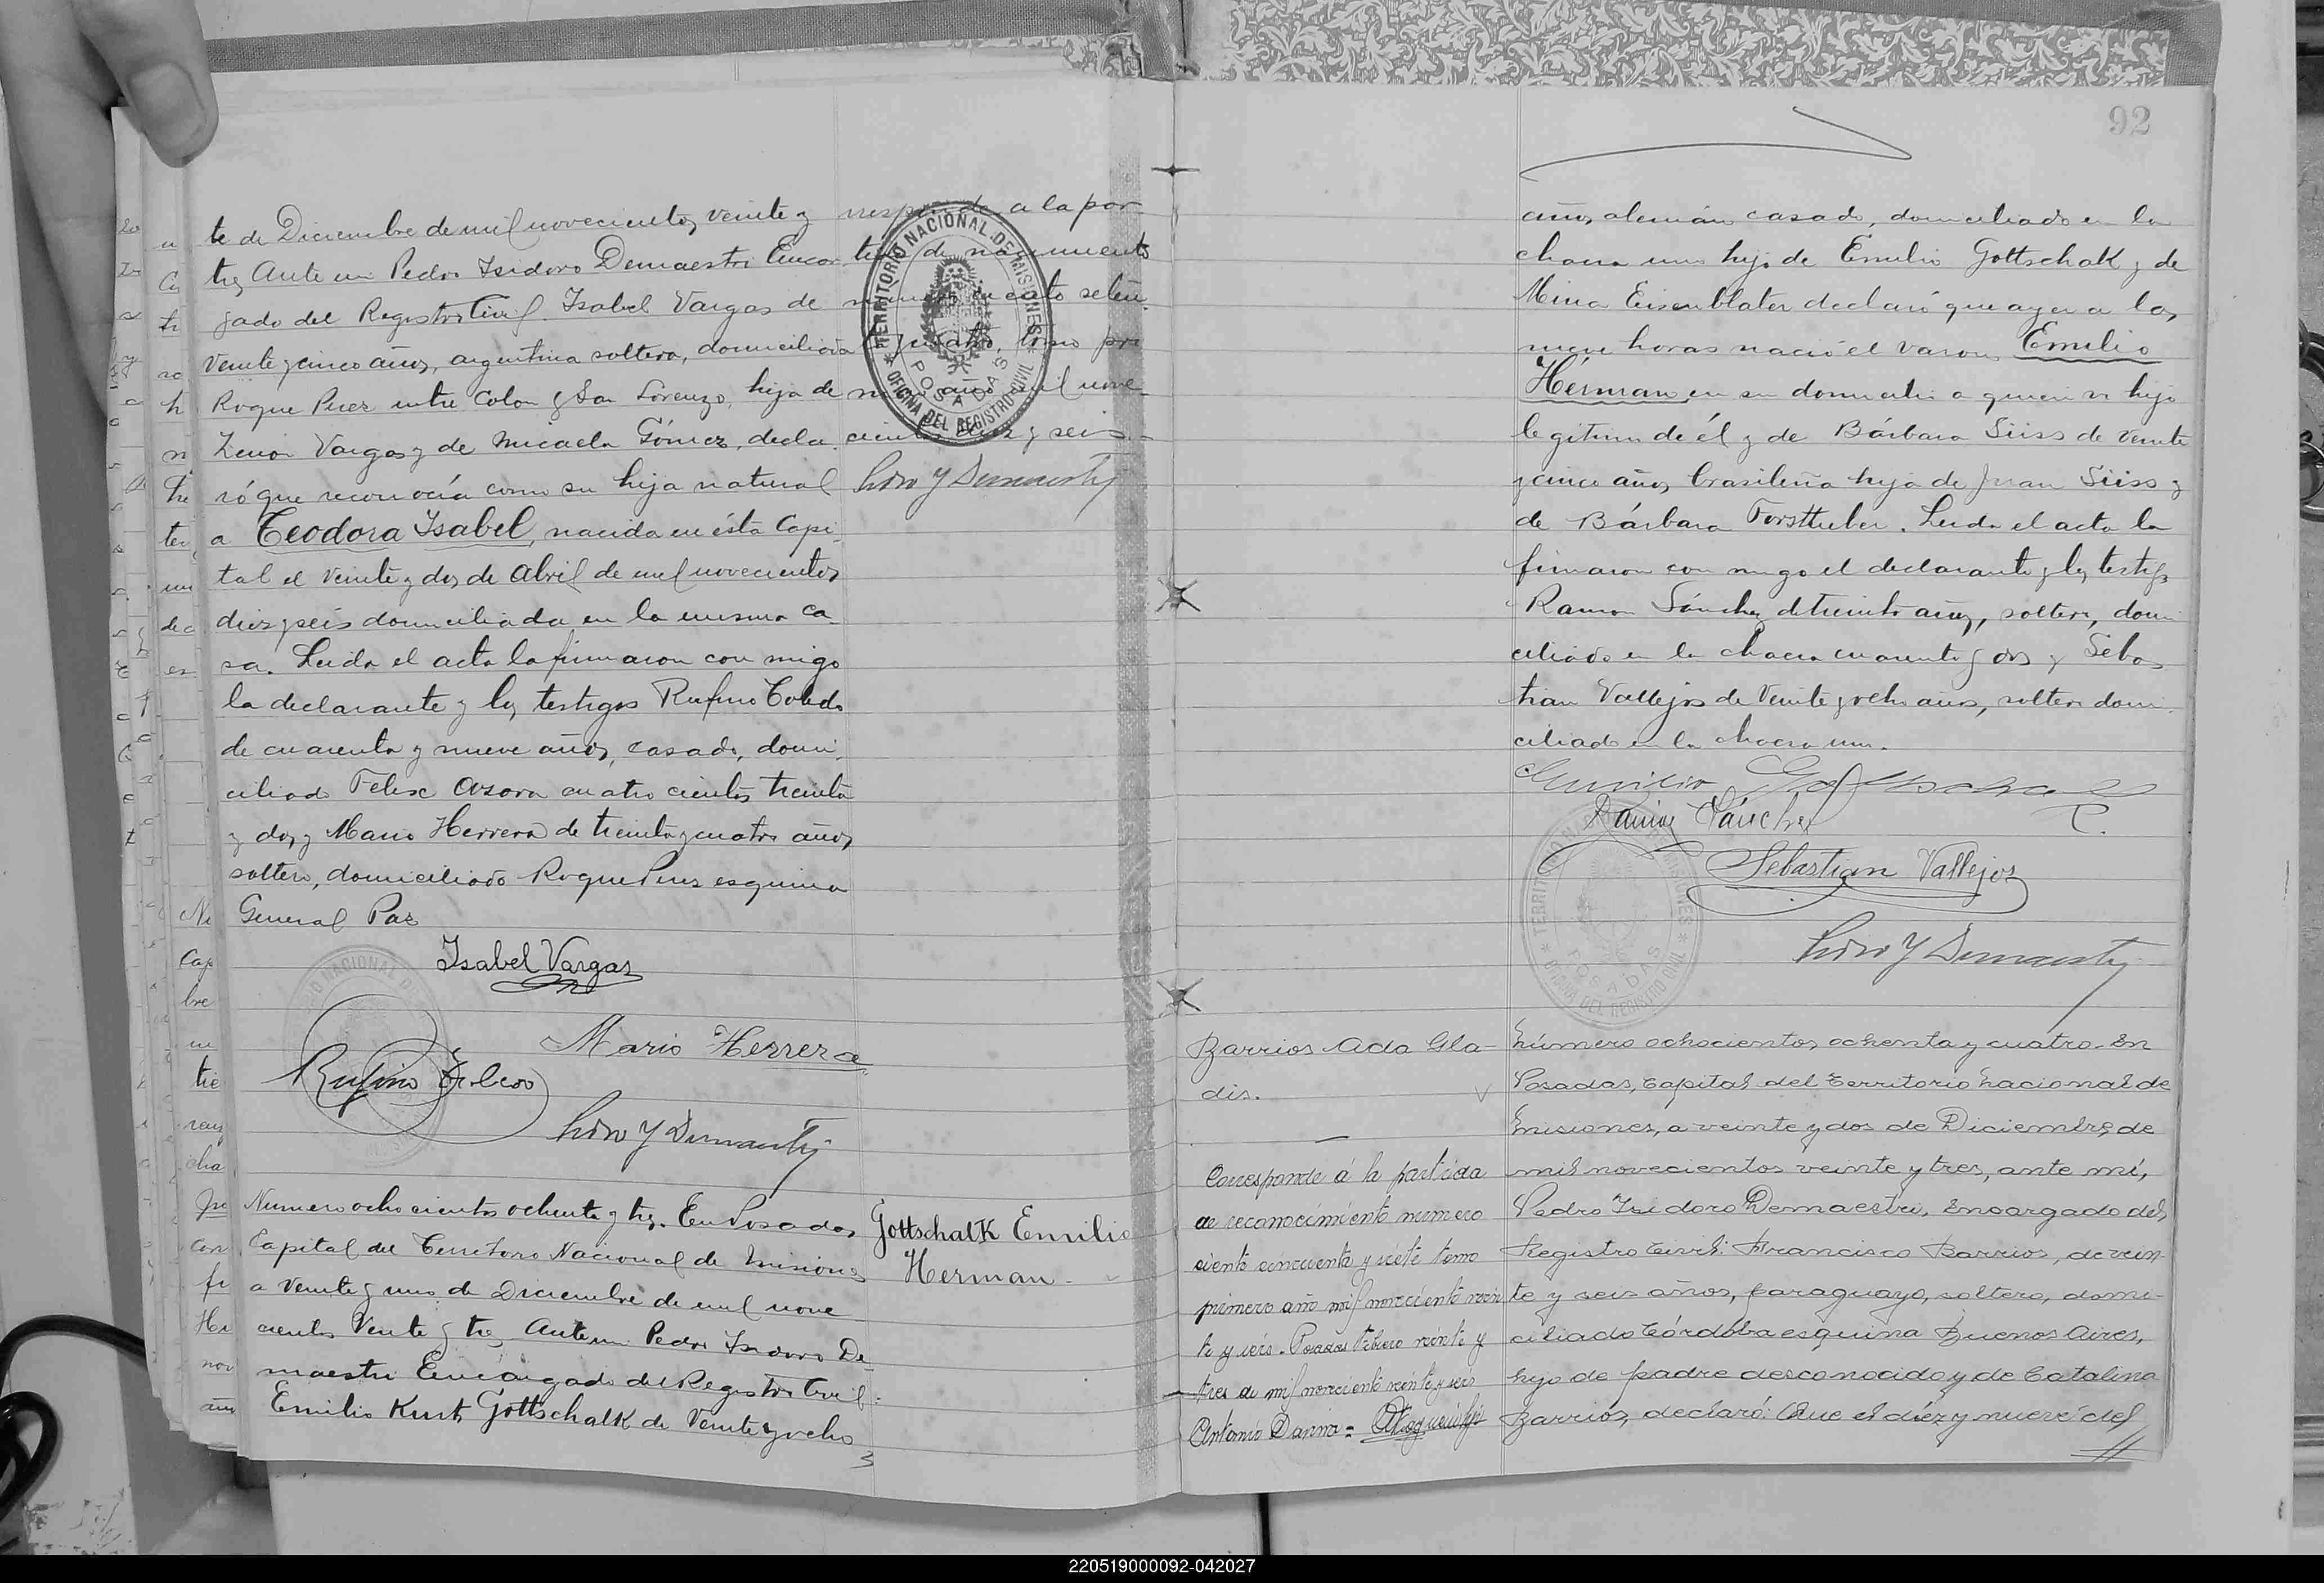 te de Diciembre de mil novecientos veinte y
tres Ante mi Pedro Isidoro Demaestri Encar
gado del Registro Civil. Isabel Vargas de
veinte y cinco años, argentina soltera, domiciliada
Roque Perez entre Colon y San Lorenzo, hija de
Zenon Vargas y de Micaela Gómez, decla
ró que reconocía como su hija natural
a Teodora Isabel, nacida en ésta Capi
tal el veinte y dos de abril de mil novecientos
diez y seis domiciliada en la misma ca
sa. Leida el acta la firmaron con migo
la declarante y los testigos Rufino Toledo
de cuarenta y nueve años, casado, domi
ciliado Felix Azara cuatro cientos treinta
y dos y Mario Herrera de treinta y cuatro años
soltero, domiciliado Roque Perez esquina
General Paz
Isabel Vargas
Mario Herrera
Rufino Toledo
responde a la par
tida de nacimiento
numero ciento seten
y cuatro, tomo pri
mero año mil nove
cientos diez y seis
TERRITORIO NACIONAL DE MISIONES
POSADAS
OFICINA DEL REGISTRO CIVIL
Numero ocho cientos ochenta y tres. En Posadas
Capital del Territorio Nacional de Misiones
a veinte y uno de Diciembre de mil nove
cientos veinte y tres Ante mi Pedro Isidoro De
maestri Encargado del Registro Civil:
Emilio Kurt Gottschalk de veinte y ocho
Gottschalk Emilio
Herman
92
años, alemán casado, domiciliado en la
chacra uno hijo de Emilio Gottschalk y de
Mina Eisenblater declaró que ayer a las
nueve horas nació el varon Emilio
Herman en su domicilio a quien vi hijo
legitimo de él y de Bárbara Süiss de veinte
y cinco años brasileña hija de Juan Süiss y
de Bárbara Forsthuber. Leida el acta la
firmaron con migo el declarante y los testigos
Ramon Sánchez de treinta años, soltero, domi
ciliado en la chacra cuarenta y dos y Sebas
tian Vallejos de veinte y ocho años, soltero domi
ciliado en la chacra uno.
Emilio Gottschalk
Ramon Sánchez
Sebastian Vallejos
TERRITORIO NACIONAL DE MISIONES
POSADAS
OFICINA DEL REGISTRO CIVIL
Barrios Ada Gla-
dis.
Corresponde á la partida
de reconocimiento numero
ciento cincuenta y siete tomo
primero año mil novecientos vein
te y seis. Posadas Febrero veinte y
tres de mil novecientos veinte y seis
Antonio Danna =
Número ochocientos ochenta y cuatro. En
Posadas, Capital del Territorio Nacional de
Misiones, a veinte y dos de Diciembre de
mil novecientos veinte y tres, ante mí,
Pedro Isidoro Demaestri, Encargado del
Registro Civil: Francisco Barrios, de vein-
te y seis años, paraguayo, soltero, domi-
ciliado Córdoba esquina Buenos Aires,
hijo de padre desconocido y de Catalina
Barrios, declaró: Que el diez y nueve del
220519000092-042027